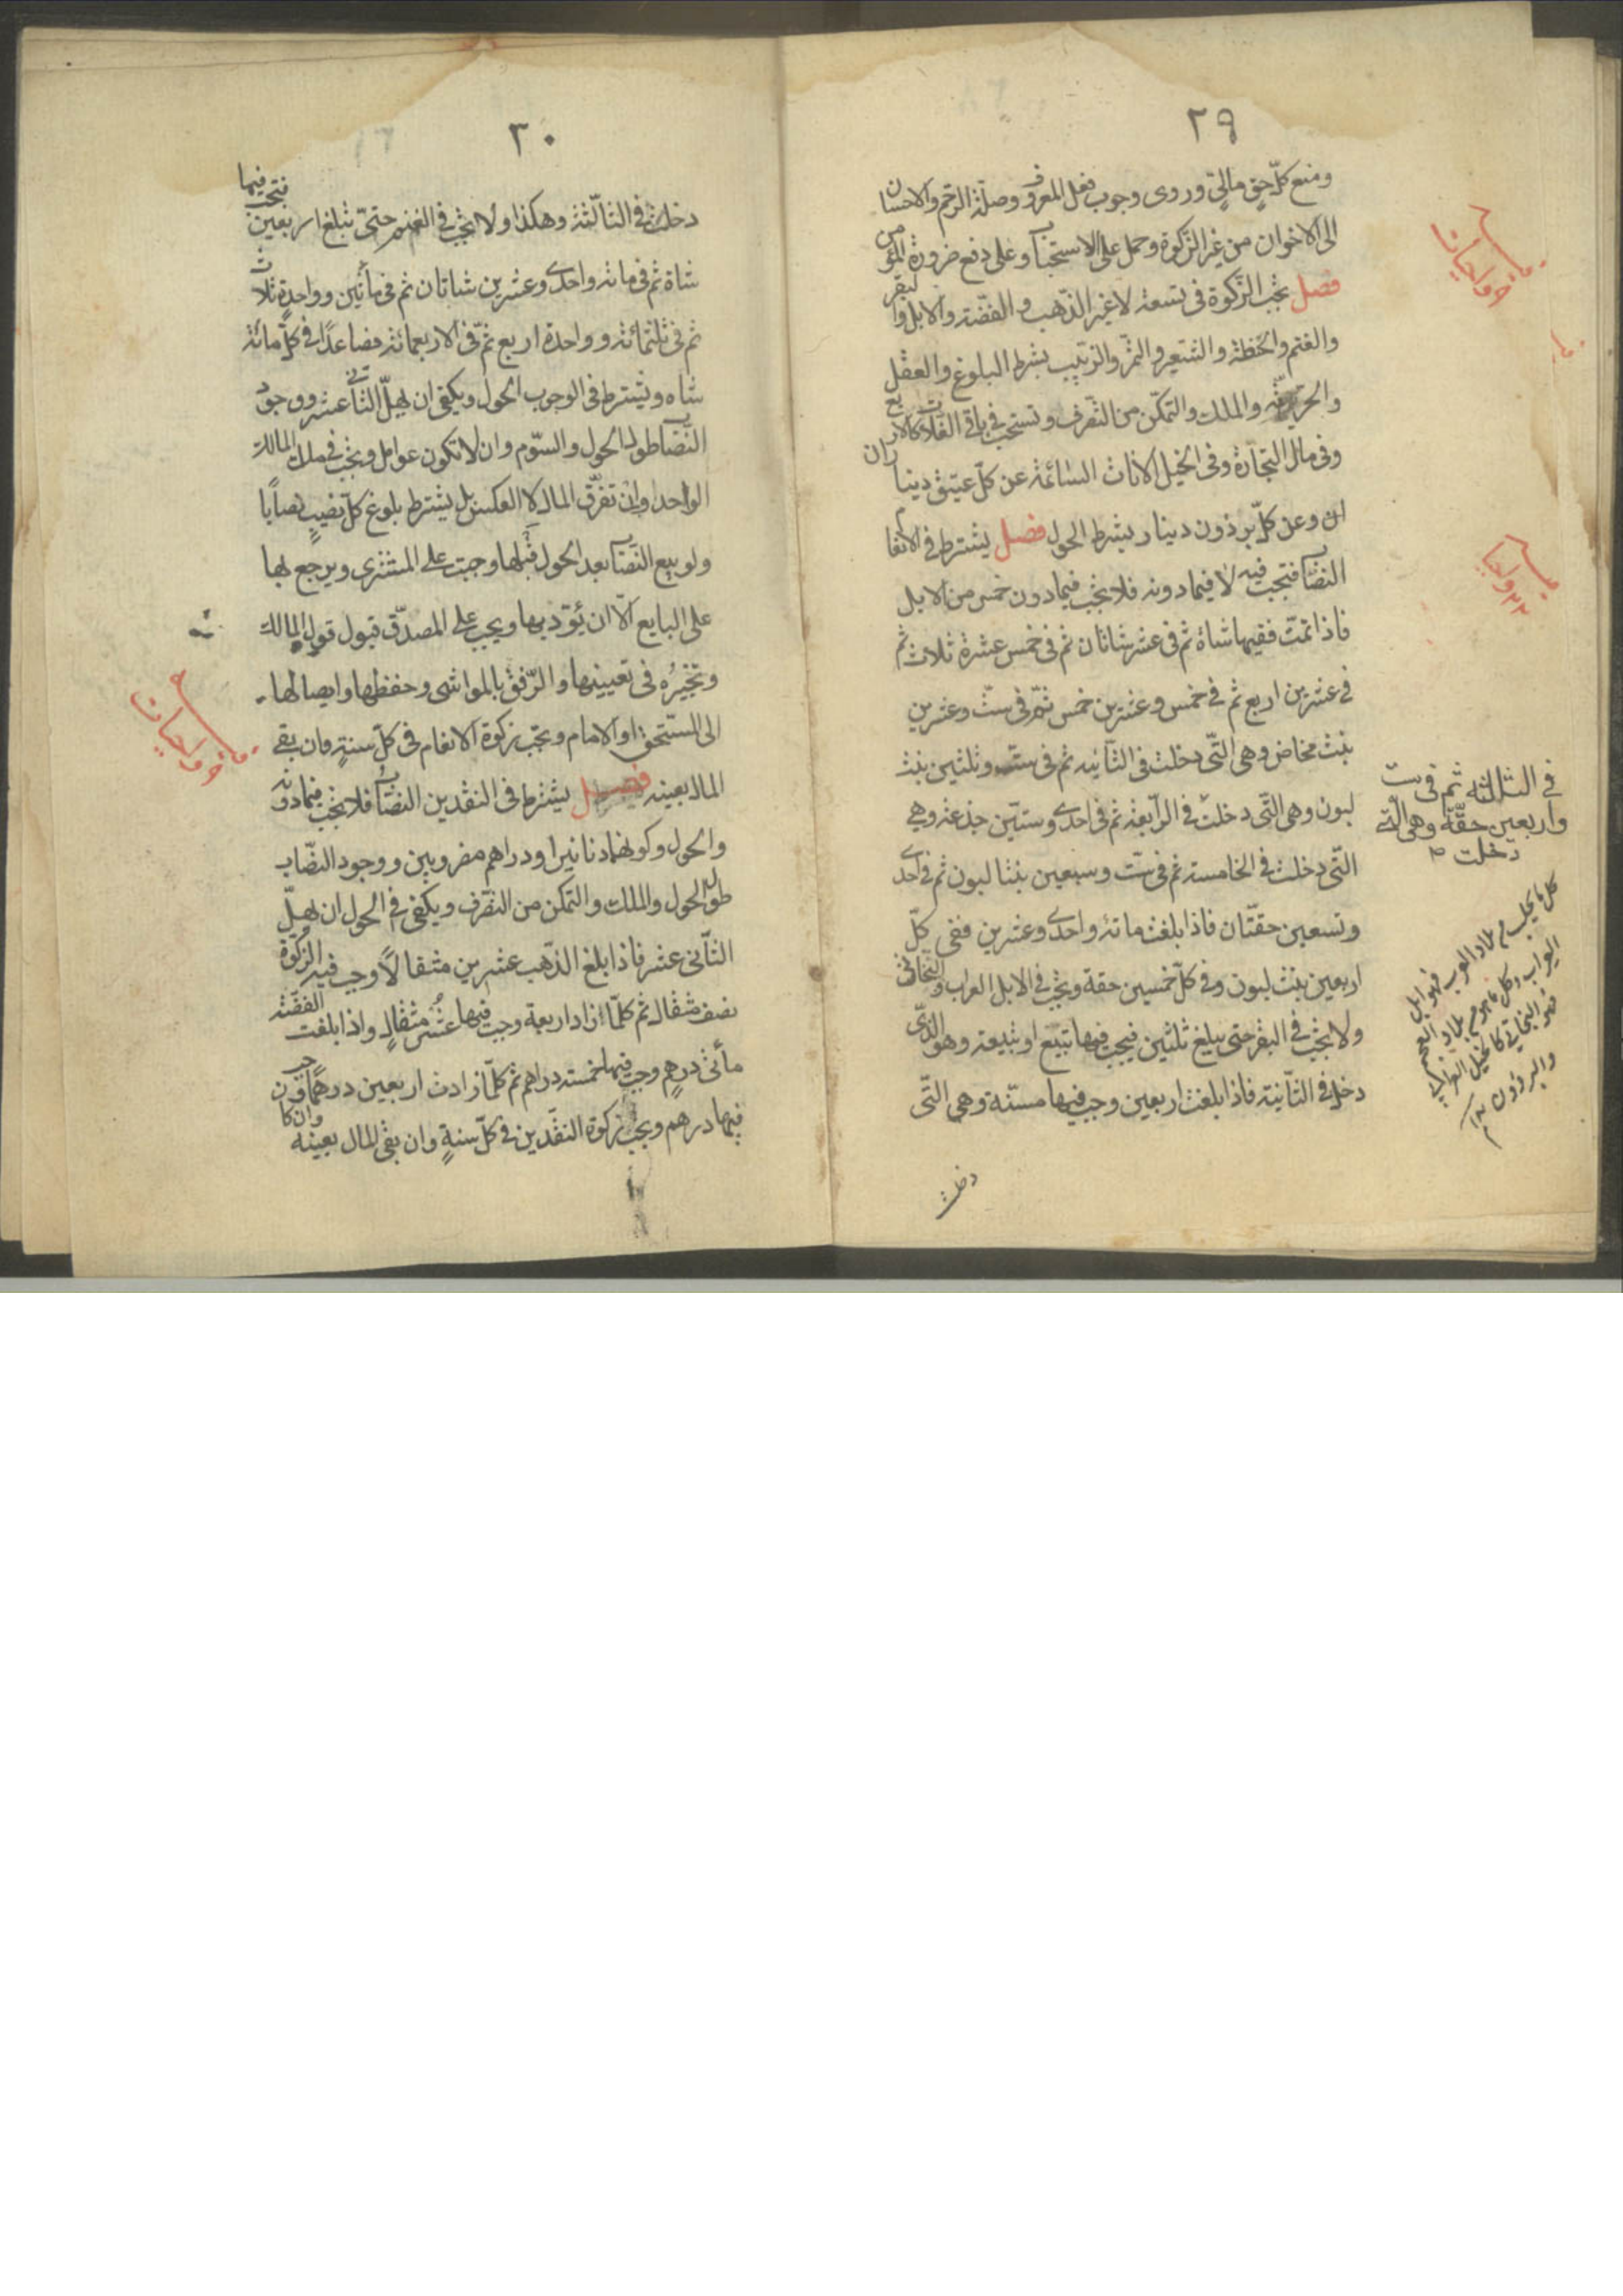 ٢٩
ومنع كلّ حقٍ ماليّ وروى وجوب فعل المعروف وصلة الرّحم والاحسان
الى الاخوان من غير الزّكوة وحمل على الاستحباب وعلى دفع ضرورة المؤمن
فصل يجب الزّكوة فى تسعة لا غير الذّهب والفضّة والابل والبقر
والغنم والحنطة والشّعير والتّمر والزّبيب بشرط البلوغ والعقل
والحرّيّة والملك والتمكّن من التّصرف وتستحب فى باقى الغلات كالارز
وفى مال التّجارة وفى الخيل الاناث السّائمة عن كلّ عتيق دينار
ان وعن كلّ برذون دينار بشرط الحول فصل يشترط فى الانعام
النّصاب فتجب فيه لا فيما دونه فلا يجب فيما دون خمس من الابل
فاذا تمّت ففيها شاة ثم فى عشر شاتان ثم فى خمس عشرة ثلاث ثم
فى عشرين اربع ثم فى خمس وعشرين خمس ثمّ فى ستّ وعشرين
بنت مخاض وهى الّتى دخلت فى الثّانية ثم فى ستّ وثلثين بنت
لبون وهى الّتى دخلت فى الرّابعة ثم فى احدى وستّين جذعة وهى
الّتى دخلت فى الخامسة ثم فى ستّ وسبعين بنتا لبون ثم فى احدى
وتسعين حقّتان فاذا بلغت مائة واحدى وعشرين ففى كلّ
اربعين بنت لبون وفى كلّ خمسين حقة ويجب فى الابل العراب والبخاتى
ولا يجب فى البقر حتى يبلغ ثلثين فيجب فيها تبيع او تبيعة وهو الّذى
دخل فى الثّانية فاذا بلغت اربعين وجب فيها مسنّة وهى الّتى
دخلت
فى الثالثة ثم فى ست
واربعين حقّة وهى الّتى
دخلت
كل ما يجلب من بلاد العرب فهو ابل
العراب وكل ما هو من بلاد العجم
فهو البخاتى كالخيل العراب
والبرذون
٣٠
دخلت فى الثّالثة وهكذا ولا يجب فى الغنم حتىّ تبلغ اربعين فتجب فيها
شاة ثم فى مائة واحدى وعشرين شاتان ثم فى مأتين وواحدة ثلاث
ثم فى ثلثمائة وواحدة اربع ثمّ فى الاربعمائة فصاعدًا فى كلّ مائة
شاه ويشترط فى الوجوب الحول ويكفى ان يهلّ الثّانى عشر ووجود
النّصاب طول الحول والسّوم وان لا تكون عوامل ويجب فى ملك المالك
الواحد وان تفرّق المال لا العكس بل يشترط بلوغ كلّ نصيبٍ نصابًا
ولو بيع النّصاب بعد الحول قبلها وجبت على المشترى ويرجع بها
على البايع الّا ان يؤدّيها ويجب على المصدّق قبول قول المالك
وتخييره فى تعيينها والرّفق بالمواشى وحفظها وايصالها
الى المستحق او الامام ويجب زكوة الانعام فى كلّ سنةٍ وان بقى
المال بعينه فصل يشترط فى النقدين النّصاب فلا يجب فيما دونه
والحول وكونهما دنانيرا ودراهم مضروبين ووجود النّصاب
طول الحول والملك والتمكن من التّصرف ويكفى فى الحول ان يهلّ
الثّانى عشر فاذا بلغ الذّهب عشرين مثقالًا وجب فيه الزكوة
نصف مثقال ثم كلّما زاد اربعة وجب فيها عُشر مثقالٍ واذا بلغت الفضّة
مأتى درهم وجب فيها خمسة دراهم ثم كلّما زادت اربعين درهمًا وجب
فيها درهم ويجب زكوة النقدين فى كلّ سنةٍ وان بقى المال بعينه وان كان